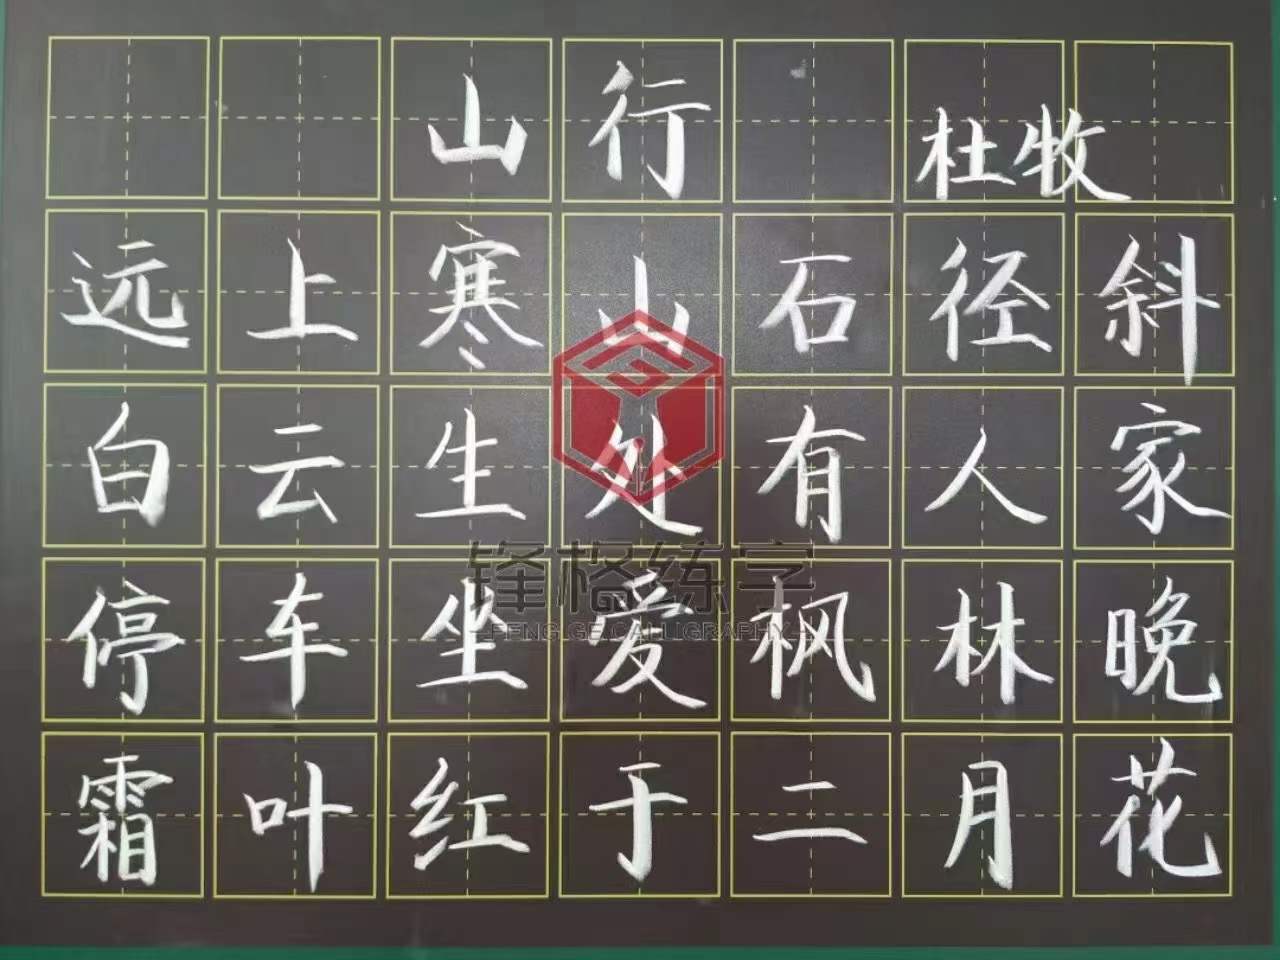 山行 杜牧
远上寒山石径斜
白云生处有人家
锋格练字
FENG GE CALLIGRAPHY
停车坐爱枫林晚
霜叶红于二月花